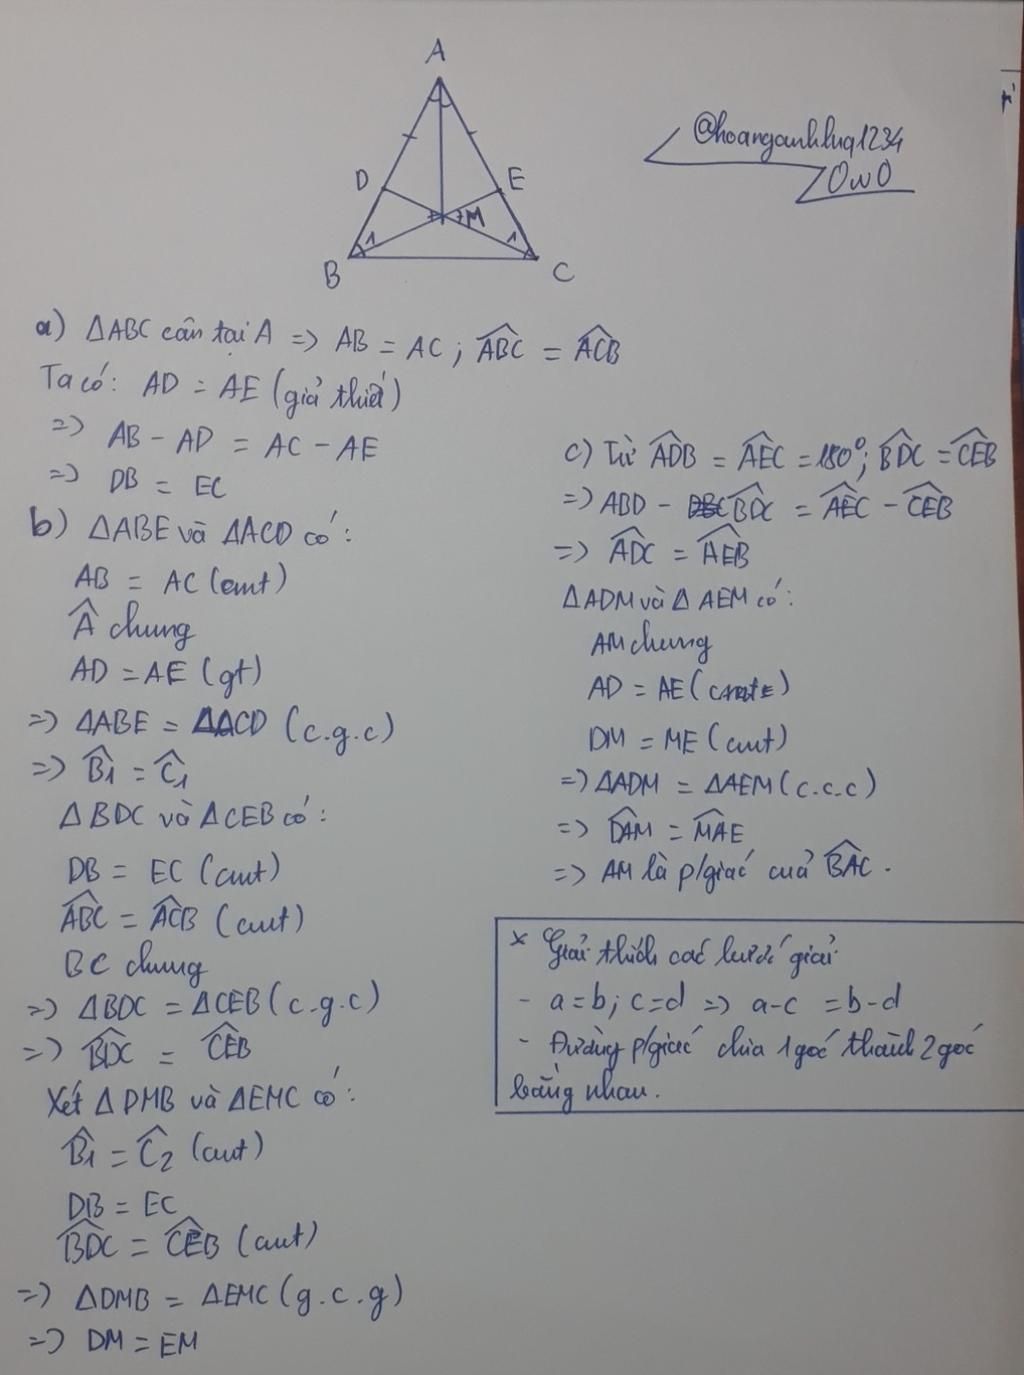 A
D
E
M
1
1
B
C
@hoanganhluq1234
OwO
a) ΔABC cân tại A => AB = AC ; \widehat{ABC} = \widehat{ACB}
Ta có: AD = AE (giả thiết)
=> AB - AD = AC - AE
=> DB = EC
b) ΔABE và ΔACD có:
AB = AC (cmt)
Â chung
AD = AE (gt)
=> ΔABE = ΔACD (c.g.c)
=> \widehat{B1} = \widehat{C1}
ΔBDC và ΔCEB có:
DB = EC (cmt)
\widehat{ABC} = \widehat{ACB} (cmt)
BC chung
=> ΔBDC = ΔCEB (c.g.c)
=> \widehat{BDC} = \widehat{CEB}
Xét ΔDMB và ΔEMC có:
\widehat{B1} = \widehat{C2} (cmt)
DB = EC
\widehat{BDC} = \widehat{CEB} (cmt)
=> ΔDMB = ΔEMC (g.c.g)
=> DM = EM
c) Từ \widehat{ADB} = \widehat{AEC} = 180°; \widehat{BDC} = \widehat{CEB}
=> ABD - \widehat{BDC} = \widehat{AEC} - \widehat{CEB}
=> \widehat{ADC} = \widehat{AEB}
ΔADM và ΔAEM có:
AM chung
AD = AE
DM = ME (cmt)
=> ΔADM = ΔAEM (c.c.c)
=> \widehat{DAM} = \widehat{MAE}
=> AM là p/giác của \widehat{BAC}.
* Giải thích các bước giải
- a = b; c = d => a-c = b-d
- Đường p/giác chia 1 góc thành 2 góc
bằng nhau.